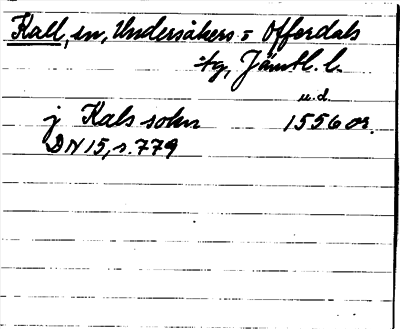 Kall, sn, Undersåkers = Offerdals
tg, Jämtl. l.
u.d.
j Kals sokn 1556 or.
DN 15, s. 779